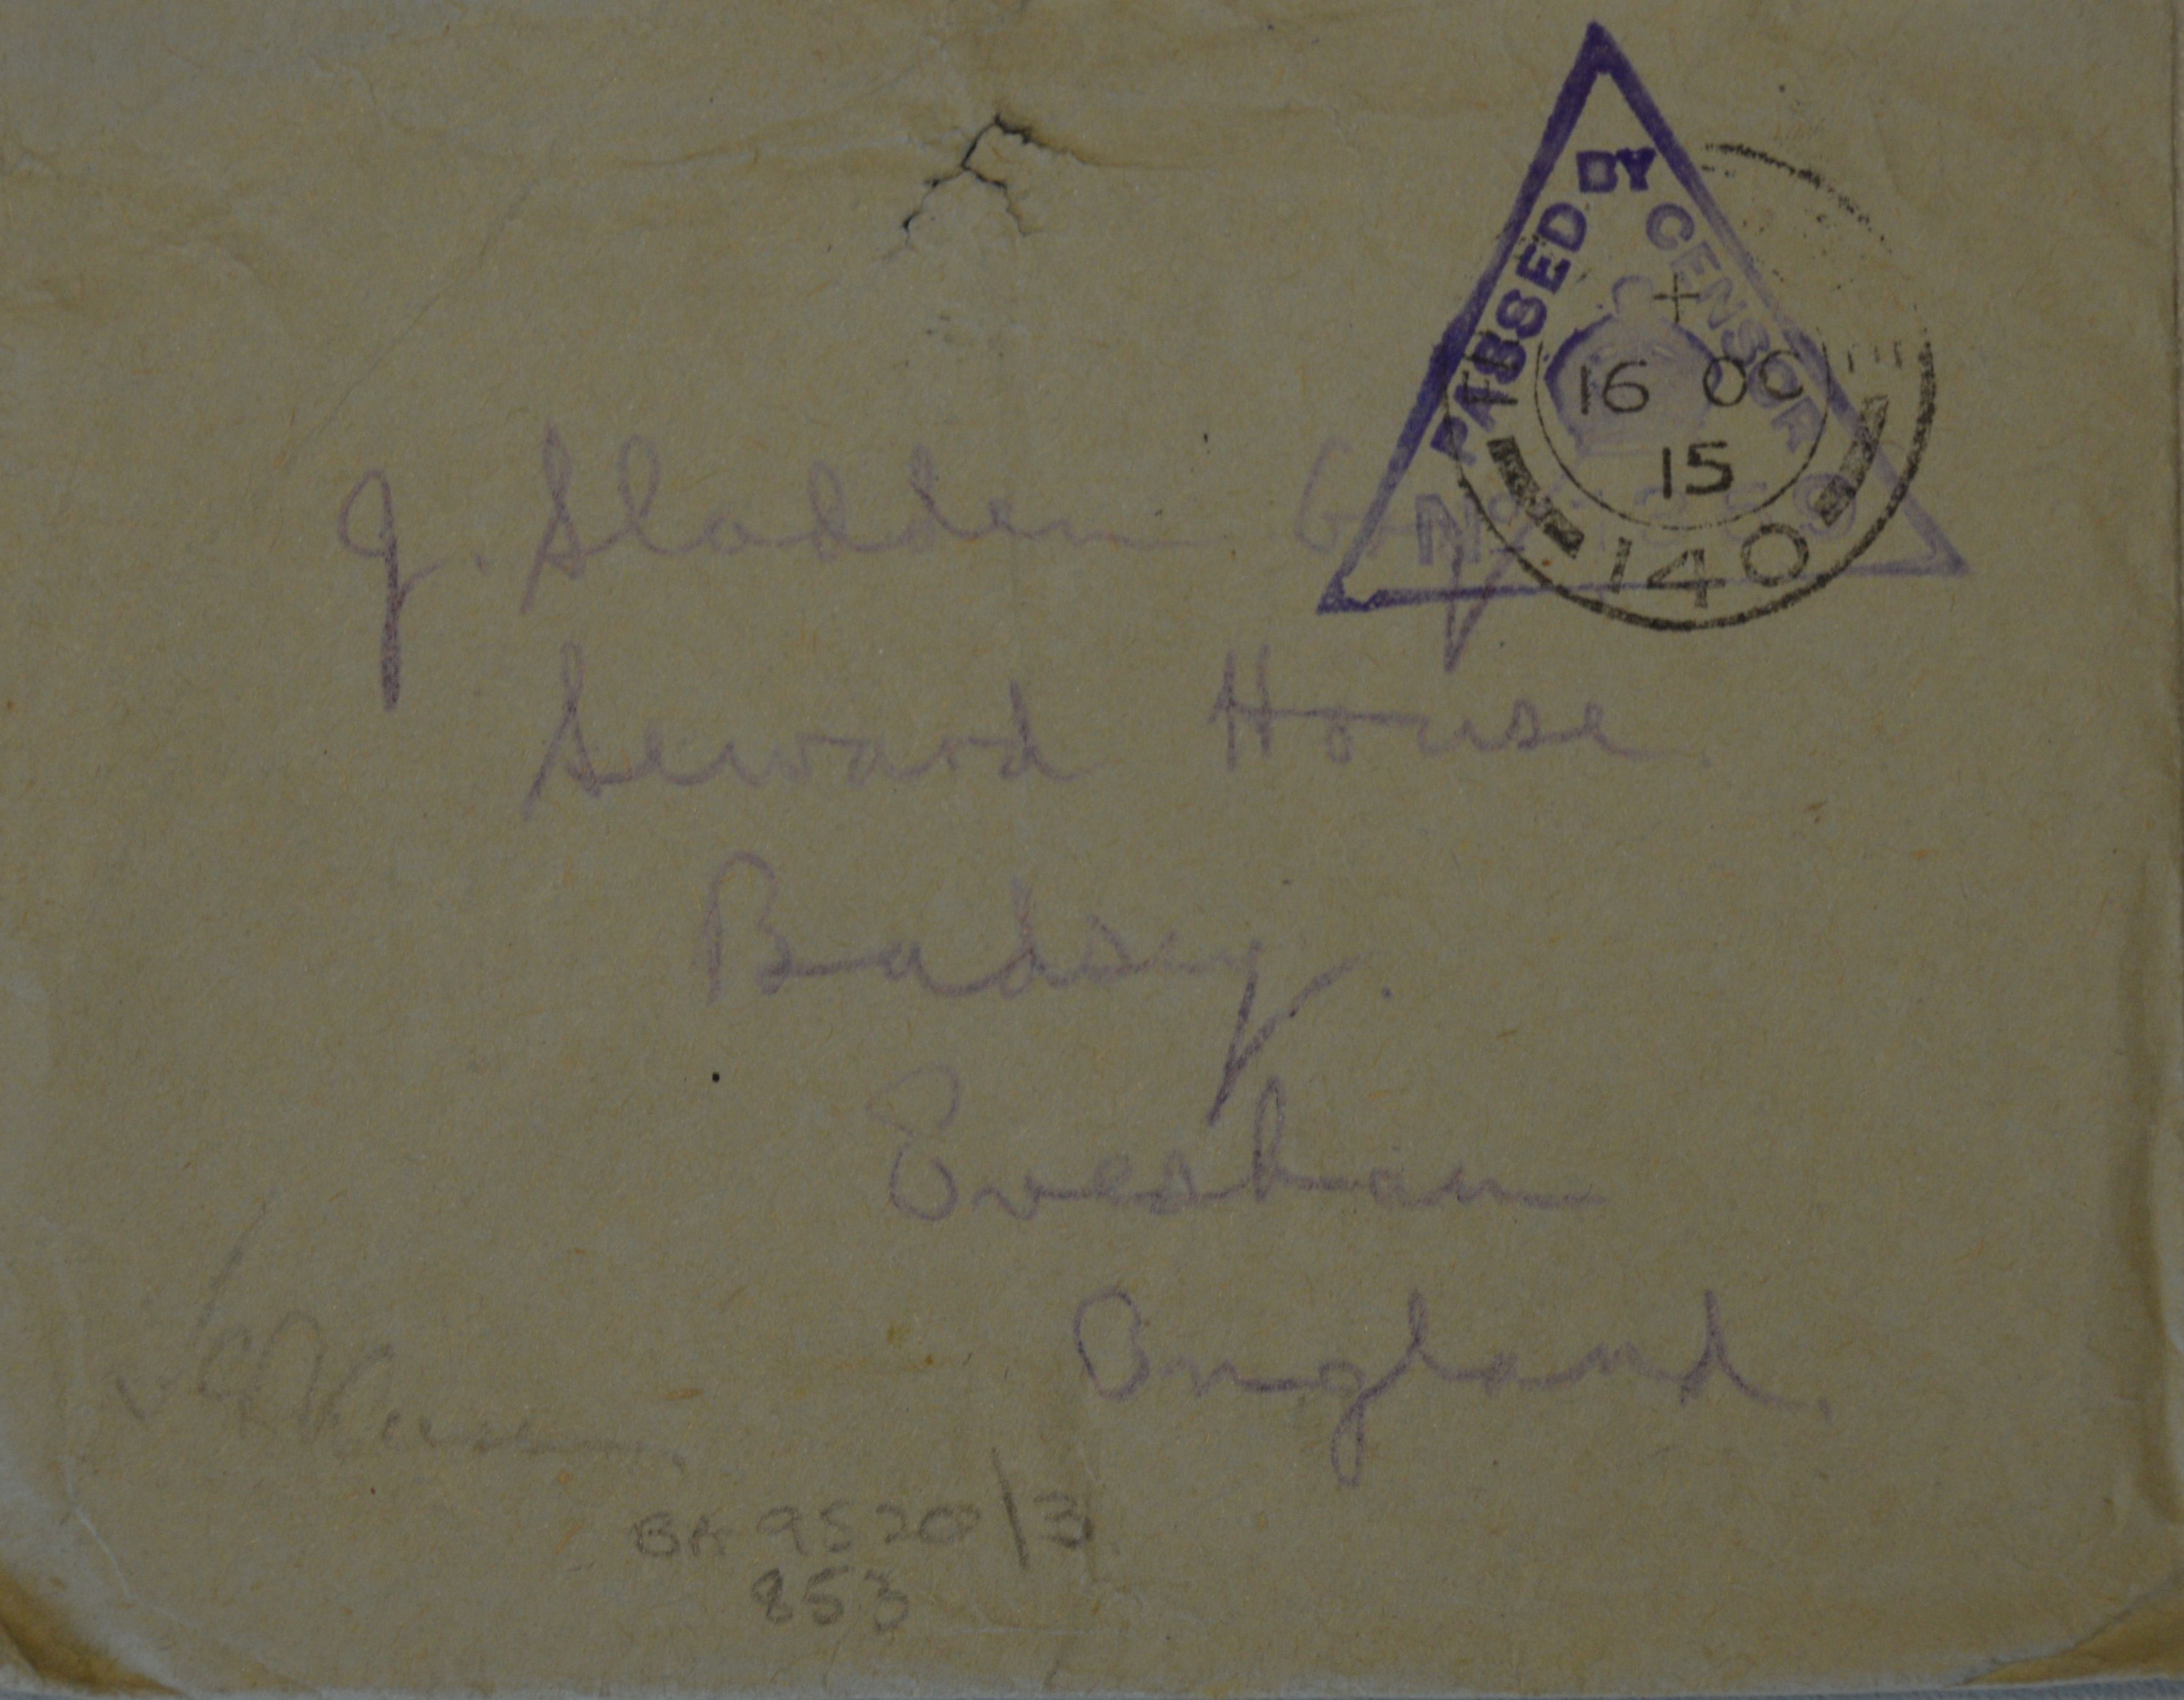 PASSED BY CENSOR
No
16 OC
15
140
J. Sladden Esq
Seward House.
Badsey.
Evesham
England.
BA 9520/3
853